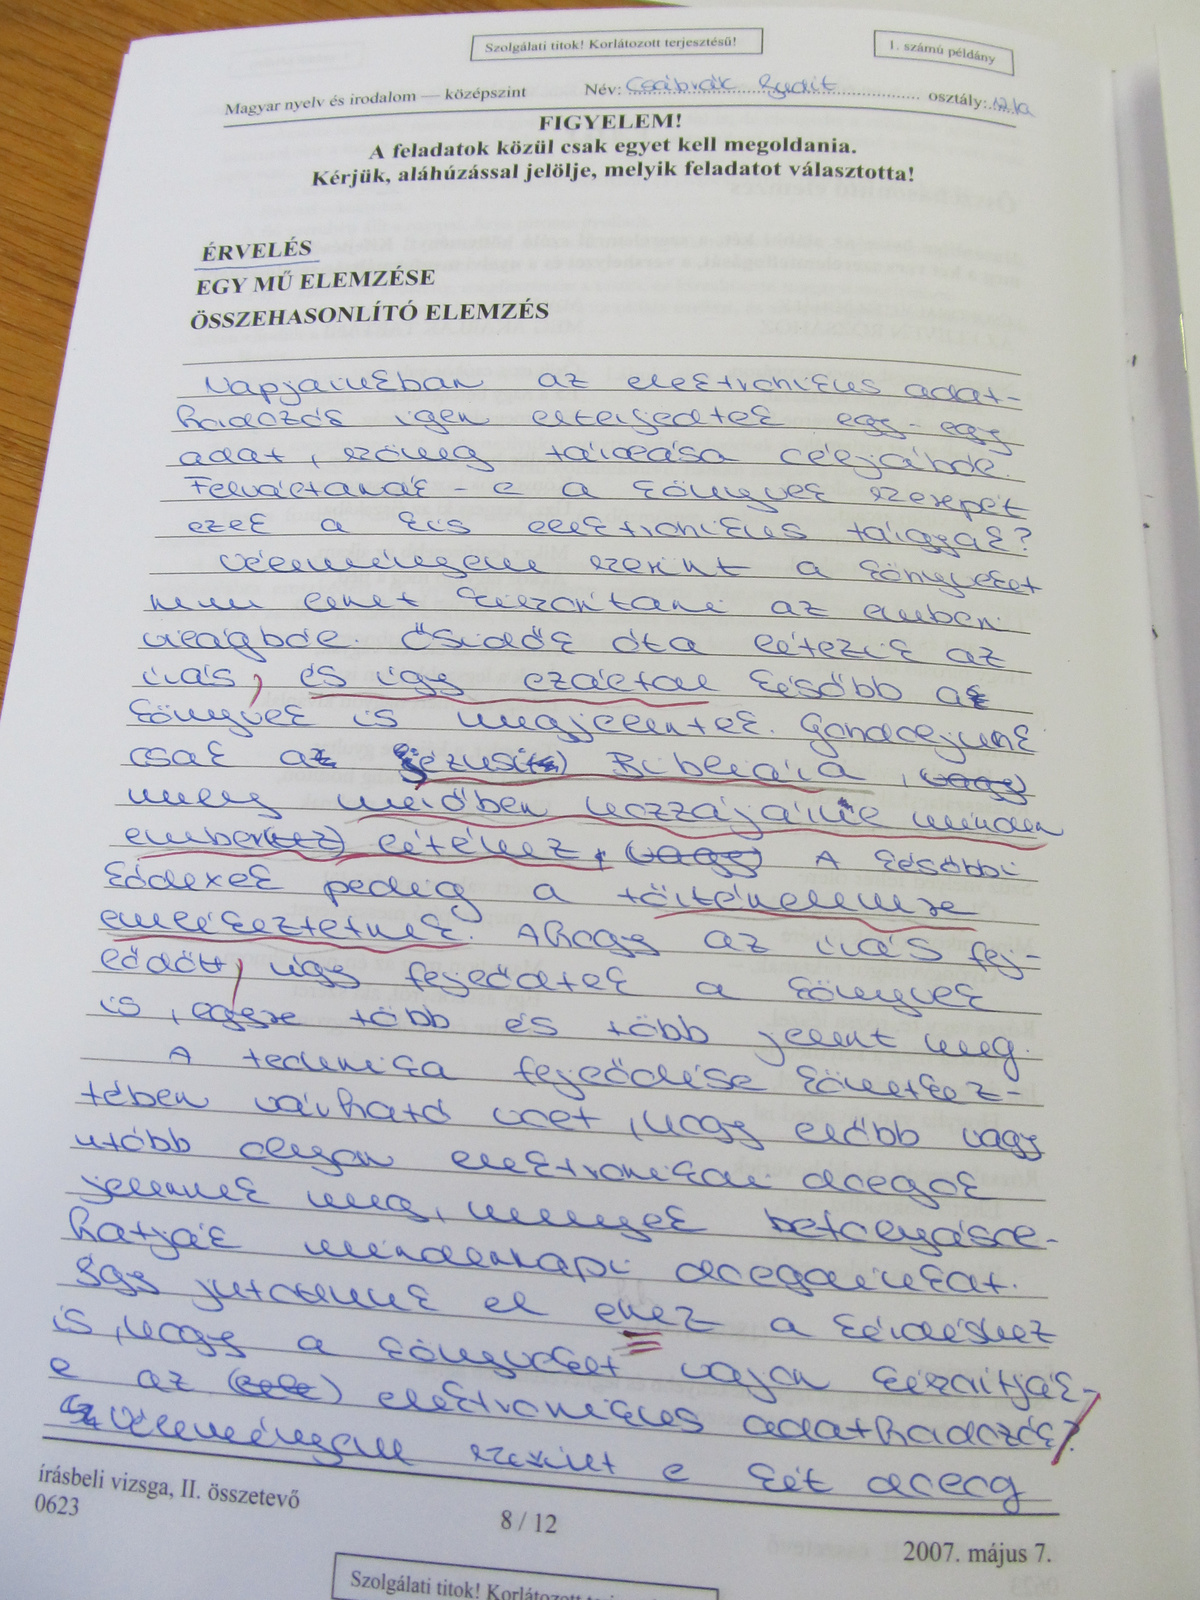 Szolgálati titok! Korlátozott terjesztésű!
1. számú példány
Magyar nyelv és irodalom — középszint Név: osztály: 12/a
FIGYELEM!
A feladatok közül csak egyet kell megoldania.
Kérjük, aláhúzással jelölje, melyik feladatot választotta!
ÉRVELÉS
EGY MŰ ELEMZÉSE
ÖSSZEHASONLÍTÓ ELEMZÉS
Napjainkban az elektronikus adat-
hadozók igen elterjedtek egy-egy
adat, szöveg tárolása céljából.
Felváltanák-e a könyvek szerepét
ezek a kis elektronikus tárgyak?
Véleményem szerint a könyveket
nem lehet kiszorítani az ember
világból. Ősidők óta létezik az
írás, és így ezáltal később a
könyvek is megjelentek. Gondoljunk
csak a Bibliára,
mely
ember létéhez. A későbbi
kódexek pedig a történelemre
emlékeztetnek. Ahogy az írás fej-
lődött, úgy fejlődtek a könyvek
is, egyre több és több jelent meg.
A technika fejlődése követkéz-
tében várható volt, hogy előbb vagy
utóbb olyan elektronikai dolgok
jelennek meg, melyek befolyásol-
hatják mindennapi dolgainkat.
Így jutottunk el ehez a kérdéshez
is, hogy a könyveket vajon kiszorítják-
e az elektronikus adathadozók?
Véleményem szerint e két dolog
írásbeli vizsga, II. összetevő
0623
8 / 12
2007. május 7.
Szolgálati titok! Korlátozott